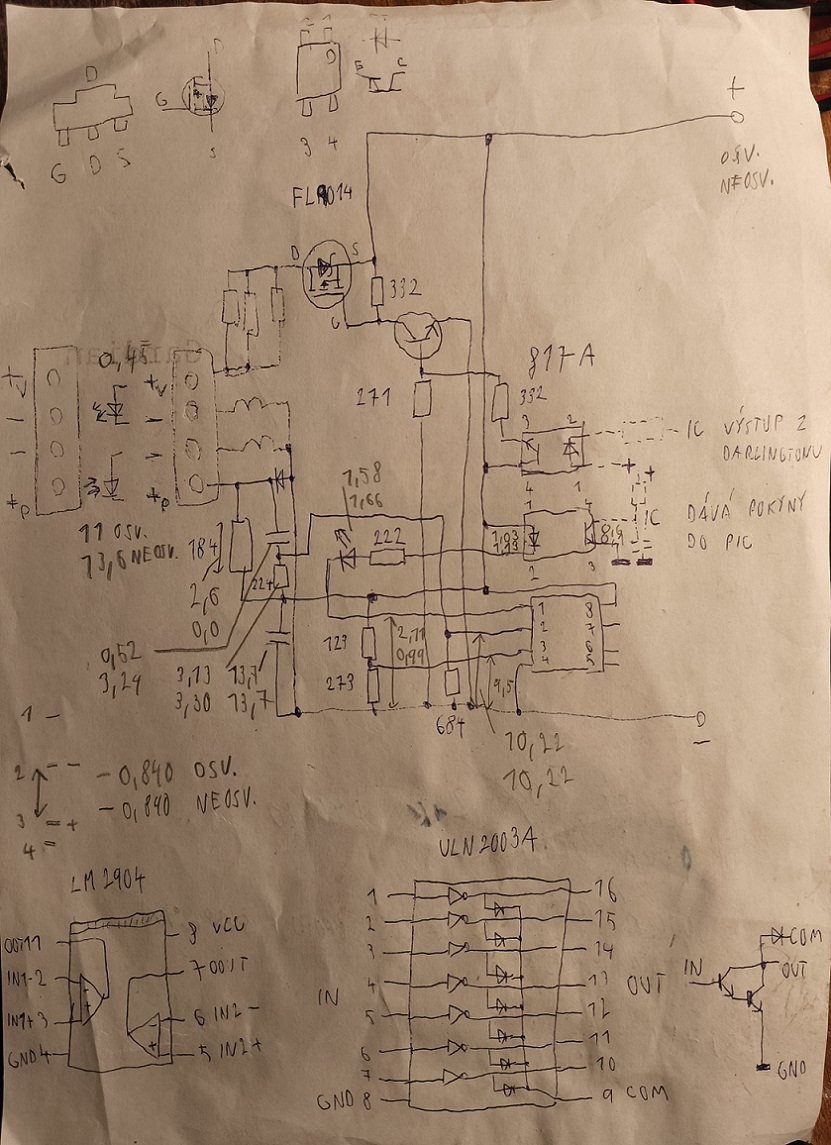 D
D
G
S
G D S
D
E C
3 4
FLR014
+
OSV.
NEOSV.
D S
G
332
817-A
271
332
3 2
4 1
IC VÝSTUP Z
DARLINGTONU
+ +
+V
-
-
+P
0,45
+V
-
-
+P
1,58
1,66
IC DÁVÁ POKYNY
DO PIC
11 OSV.
13,6 NEOSV.
184
222
1 4
2 3
2,6
0,0
224
1 8
2 7
3 6
4 5
0,52
3,24
3,13
3,30
13,7
13,7
123
273
2,11
0,99
9,5
684
10,22
10,22
-
1 -
2 - -
3 = +
4 =
- 0,840 OSV.
- 0,840 NEOSV.
LM 2904
OUT1 1
IN1- 2
IN1+ 3
GND 4
8 VCC
7 OUT
6 IN2 -
5 IN2 +
ULN2003A
1 16
2 15
3 14
4 13
5 12
6 11
7 10
GND 8 9 COM
IN
OUT
COM
IN OUT
GND